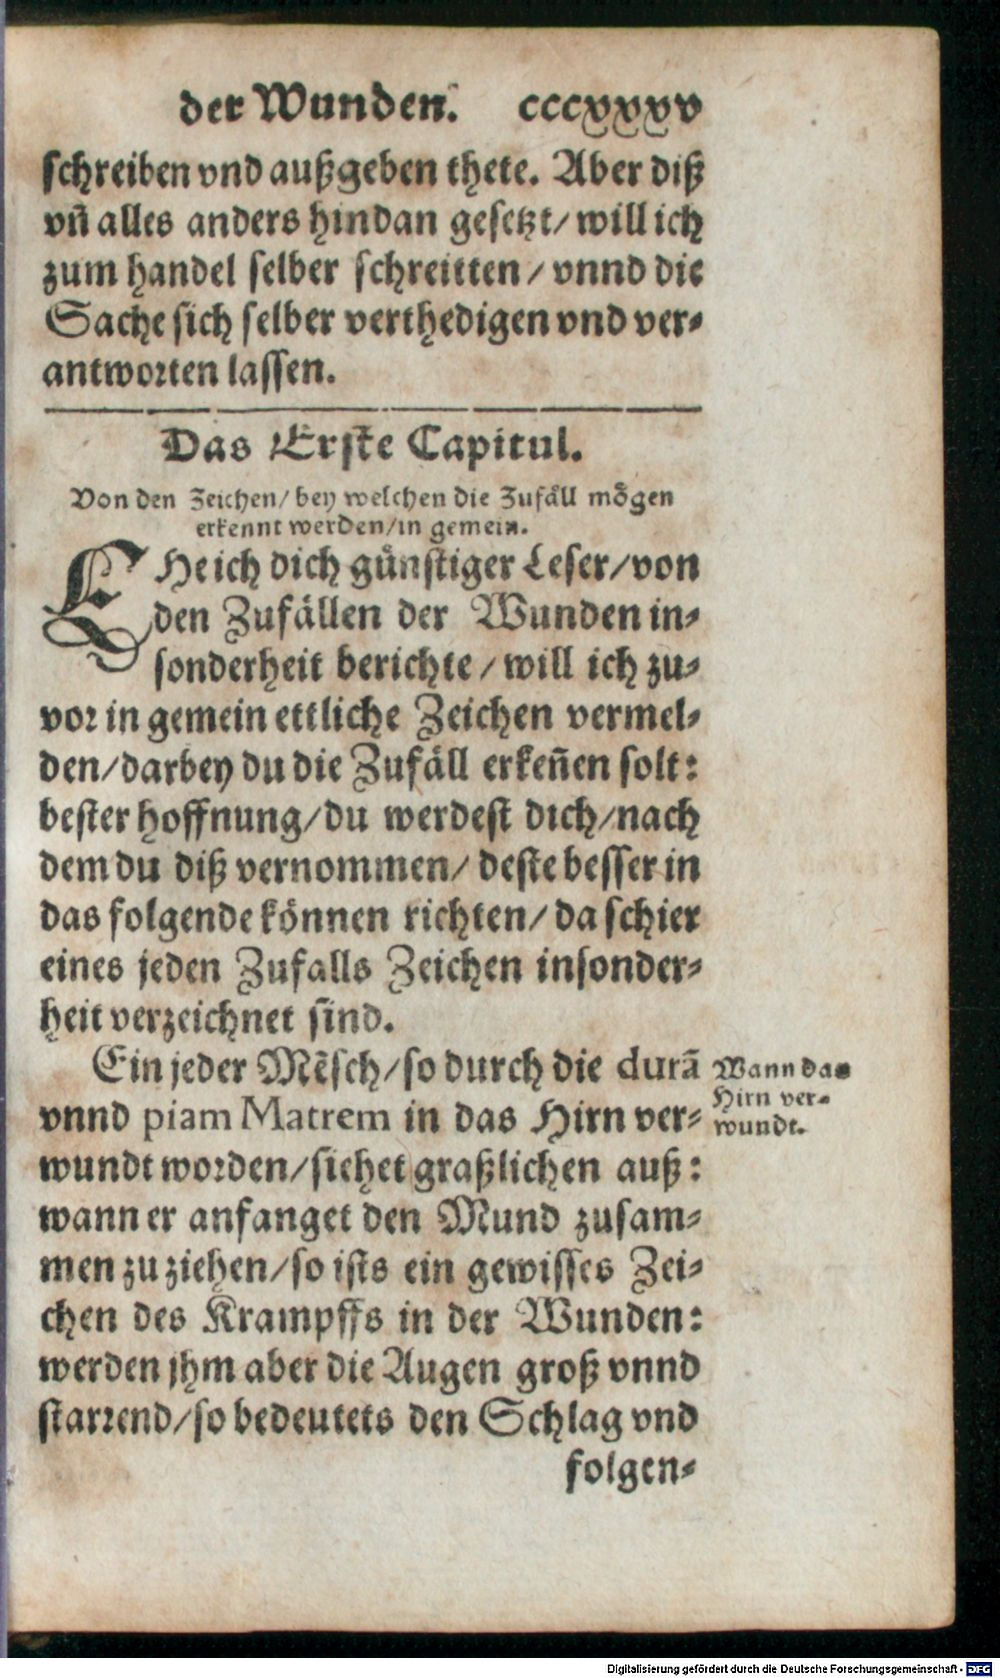 der Wunden. cccxxxv
schreiben vnd außgeben thete. Aber diß
vñ alles anders hindan gesetzt/ will ich
zum handel selber schreitten/ vnnd die
Sache sich selber verthedigen vnd ver-
antworten lassen.
Das Erste Capitul.
Von den Zeichen/ bey welchen die Zufäll mögen
erkennt werden/ in gemein.
EHe ich dich günstiger Leser/ von
den Zufällen der Wunden in-
sonderheit berichte/ will ich zu-
vor in gemein ettliche Zeichen vermel-
den/ darbey du die Zufäll erkeñen solt:
bester hoffnung/ du werdest dich/ nach
dem du diß vernommen/ deste besser in
das folgende können richten/ da schier
eines jeden Zufalls Zeichen insonder-
heit verzeichnet sind.
Ein jeder Mẽsch/ so durch die durã
vnnd piam Matrem in das Hirn ver-
wundt worden/ siehet graßlichen auß:
wann er anfanget den Mund zusam-
men zu ziehen/ so ists ein gewisses Zei-
chen des Krampffs in der Wunden:
werden jhm aber die Augen groß vnnd
starrend/ so bedeutets den Schlag vnd
folgen-
Wann das
Hirn ver-
wundt.
Digitalisierung gefördert durch die Deutsche Forschungsgemeinschaft - DFG